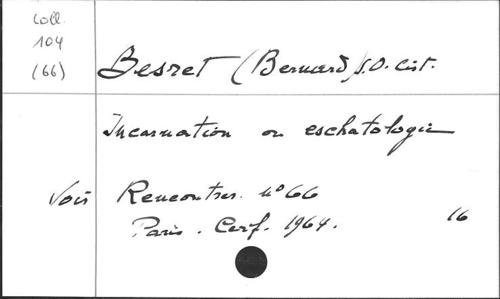 Coll.
104
(66)
Besret (Bernard) S.O. Cist.
Incarnation ou eschatologie
Voir Rencontres. n° 66
Paris. Cerf. 1964. 16